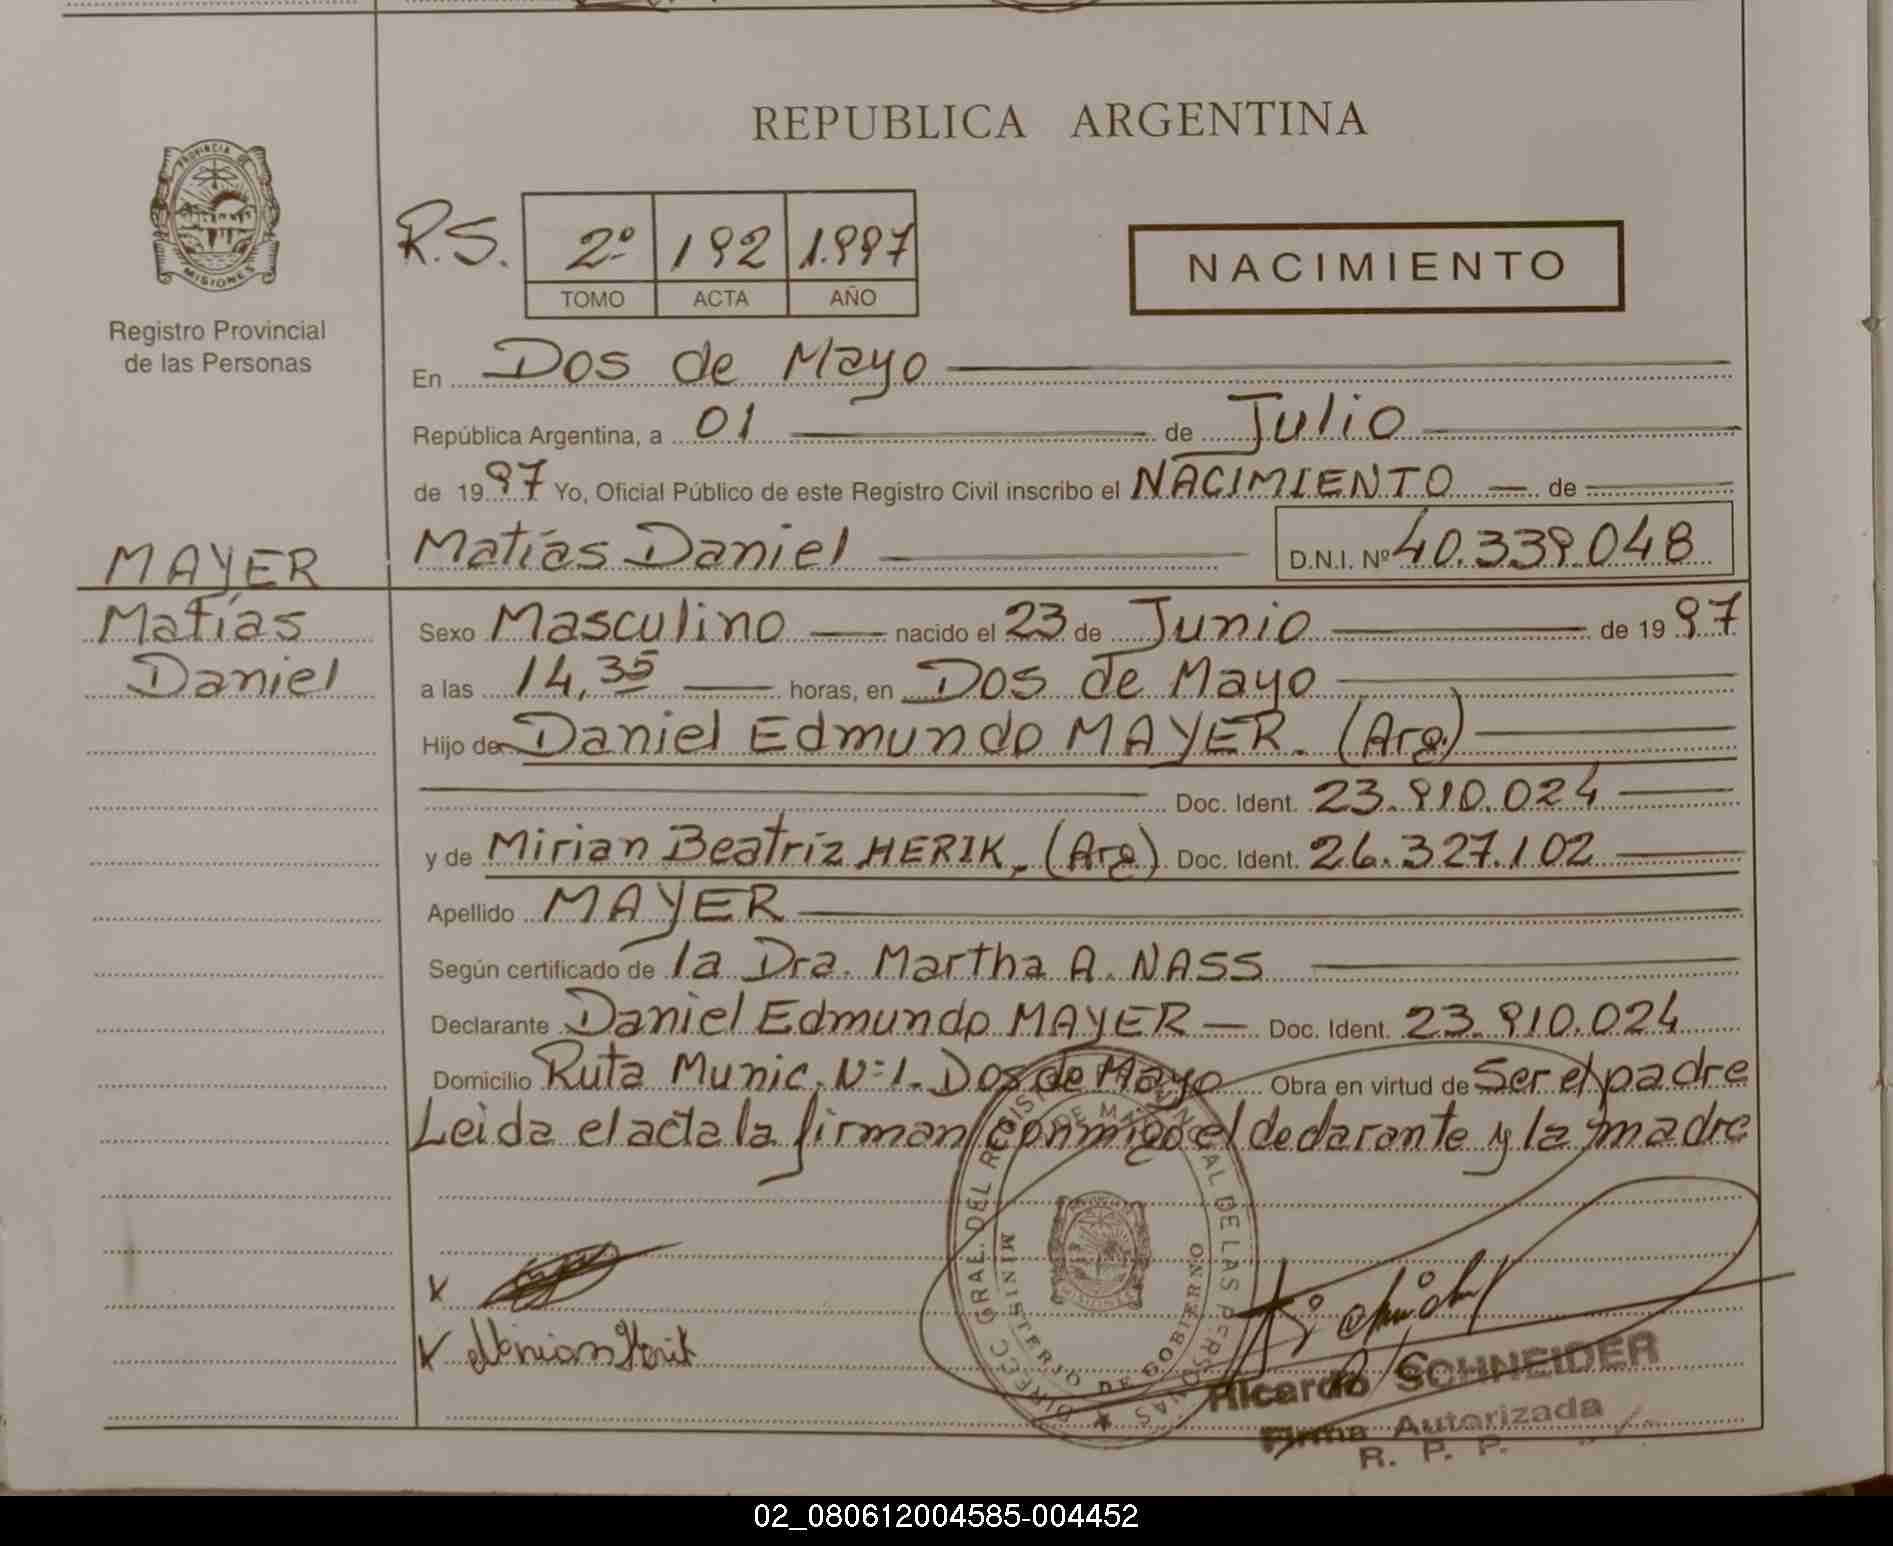 REPUBLICA ARGENTINA
PROVINCIA DE
MISIONES
Registro Provincial
de las Personas
R.S. 2º 192 1.997
TOMO ACTA AÑO
NACIMIENTO
En Dos de Mayo
República Argentina, a 01 de Julio
de 1997 Yo, Oficial Público de este Registro Civil inscribo el NACIMIENTO de
Matías Daniel D.N.I. Nº 40.339.048
MAYER
Matías
Daniel
Sexo Masculino nacido el 23 de Junio de 1997
a las 14,35 horas, en Dos de Mayo
Hijo de Daniel Edmundo MAYER. (Arg.)
Doc. Ident. 23.910.024
y de Mirian Beatríz HERIK, (Arg) Doc. Ident. 26.327.102
Apellido MAYER
Según certificado de la Dra. Martha A. NASS
Declarante Daniel Edmundo MAYER Doc. Ident. 23.910.024
Domicilio Ruta Munic. Nº1. Dos de Mayo Obra en virtud de Ser el padre
Leida el acta la firman conmigo el declarante y la madre
DIREEC GRAE. DEL REGIST PROVINCIAL DE LAS PERSONAS
MINISTERIO DE GOBIERNO
MISIONES
x
x Mirian Herik
Ricardo SCHNEIDER
Firma Autorizada
R. P. P.
02_080612004585-004452